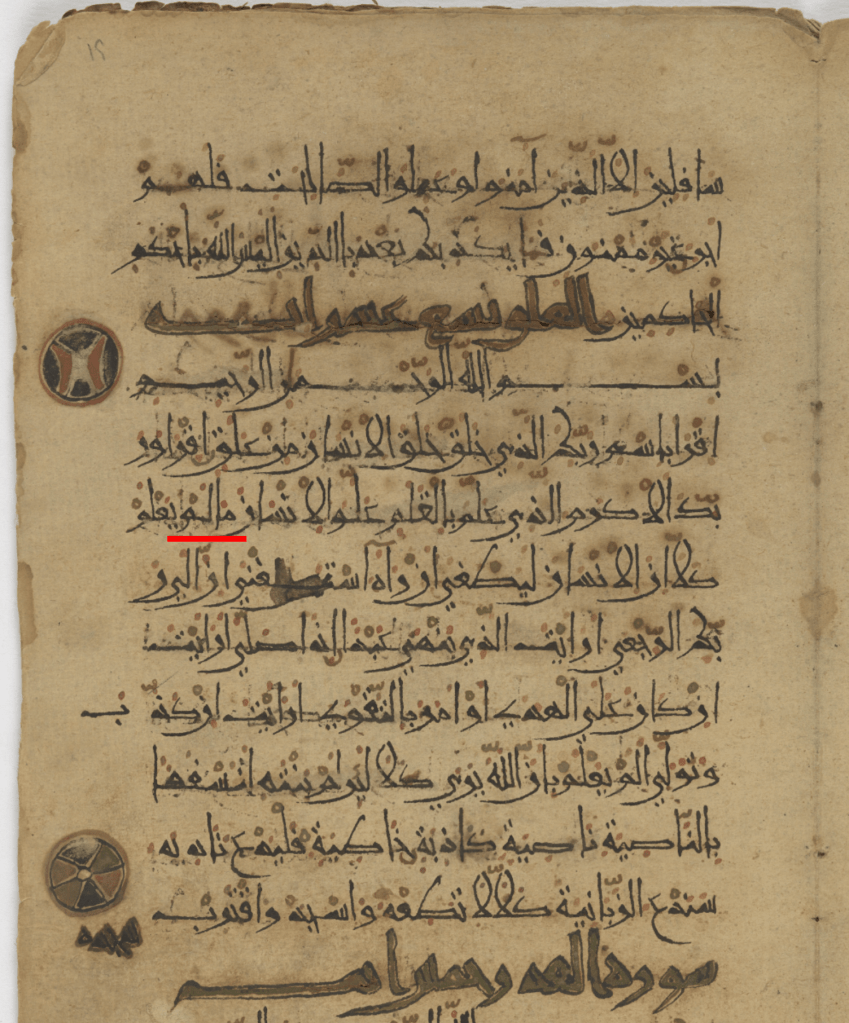 سافلين الا الذين آمنوا وعملوا الصالحت فلهم
اجر غير ممنون فما يكذبك بعد بالدين اليس الله باحكم
الحاكمين العلق تسع عشر ايه
بسم الله الرحمن الرحيم
اقرا باسم ربك الذي خلق خلق الانسان من علق اقرا ور
بك الاكرم الذي علم بالقلم علم الانسان ما لم يعلم
كلا ان الانسان ليطغى ان رآه استغنى ان الى ر
بك الرجعى ارايت الذي ينهى عبدا اذا صلى ارايت
ان كان على الهدى او امر بالتقوى ارايت ان كذ ب
وتولى الم يعلم بان الله يرى كلا لئن لم ينته لنسفعا
بالناصية ناصية كاذبة خاطية فليدع ناديه
سندع الزبانية كلا لا تطعه واسجد واقترب
سجده
سورة القدر وخمس ايات